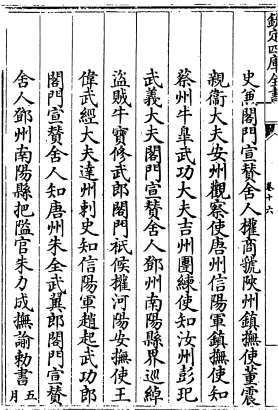 欽定四庫全書
卷十六
史無閤門宣賛舍人權商虢陜州鎮撫使董震
親衞大夫安州觀察使唐州信陽軍鎮撫使知
蔡州牛皐武功大夫吉州團練使知汝州彭玘
武義大夫閤門宣賛舍人鄧州南陽縣界巡綽
盜賊牛寶修武郎閤門祗候權河陽安撫使王
偉武經大夫達州刺史知信陽軍趙起武功郎
閤門宣賛舍人知唐州朱全武翼郎閤門宣賛
舍人鄧州南陽縣把隘官朱力成撫諭勅書五月